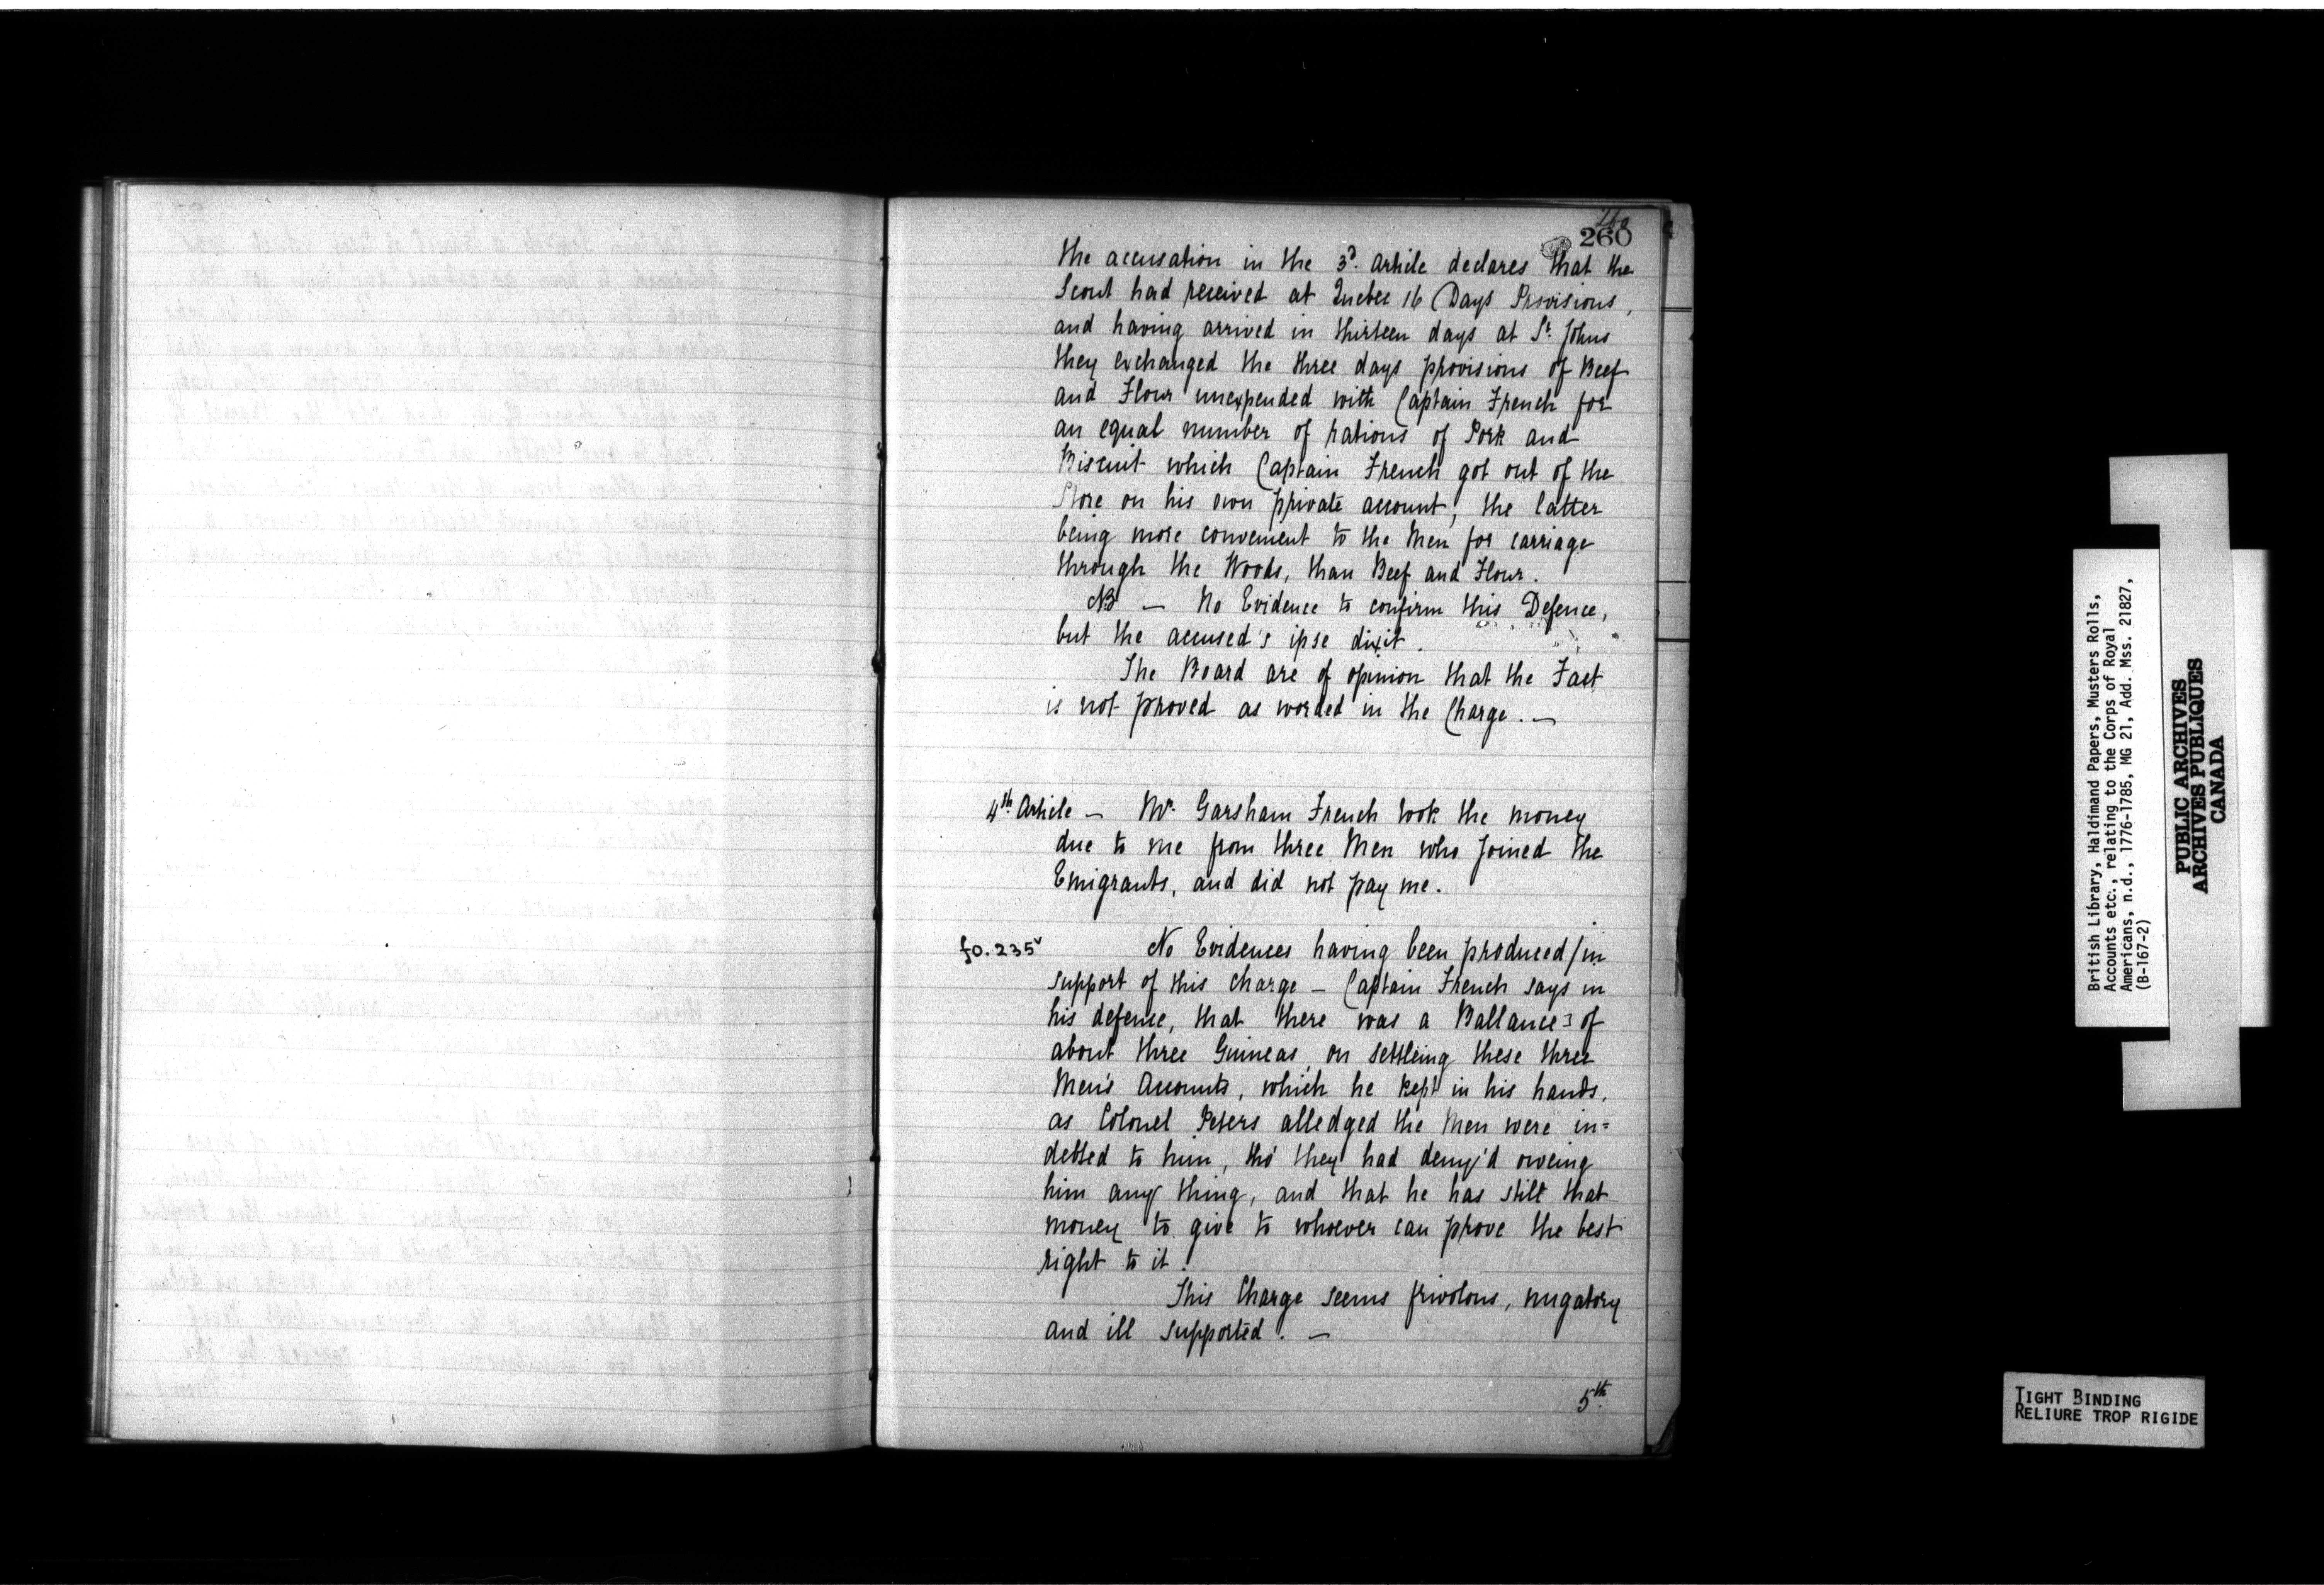 260
260
the accusation in the 3d. Article declares that the
Scout had received at Quebec 16 Days Provisions,
and having arrived in thirteen days at St. Johns
they exchanged the three days provisions of Beef
and Flour unexpended with Captain French for
an equal number of rations of Pork and
Biscuit which Captain French got out of the
Store on his own private account, the latter
being more convenient to the Men for carriage
through the Woods, than Beef and Flour.
NB — No Evidence to confirm this Defence,
but the accused's ipse dixit.
The Board are of opinion that the Fact
is not proved as worded in the Charge. —
4th Article — Mr. Garsham French took the money
due to me from three Men who joined the
Emigrants, and did not pay me.
fo. 235v No Evidences having been produced / in
support of this Charge — Captain French says in
his defense, that there was a Ballance of
about three Guineas, on settleing these three
Men's Accounts, which he kept in his hands,
as Colonel Peters alledged the Men were in=
debted to him, tho' they had deny'd oweing
him any thing, and that he has still that
money to give to whoever can prove the best
right to it.
This Charge seems frivolous, nugatory
and ill supported. —
5th.
British Library, Haldimand Papers, Musters Rolls,
Accounts etc., relating to the Corps of Royal
Americans, n.d., 1776-1785, MG 21, Add. Mss. 21827,
(B-167-2)
PUBLIC ARCHIVES
ARCHIVES PUBLIQUES
CANADA
TIGHT BINDING
RELIURE TROP RIGIDE